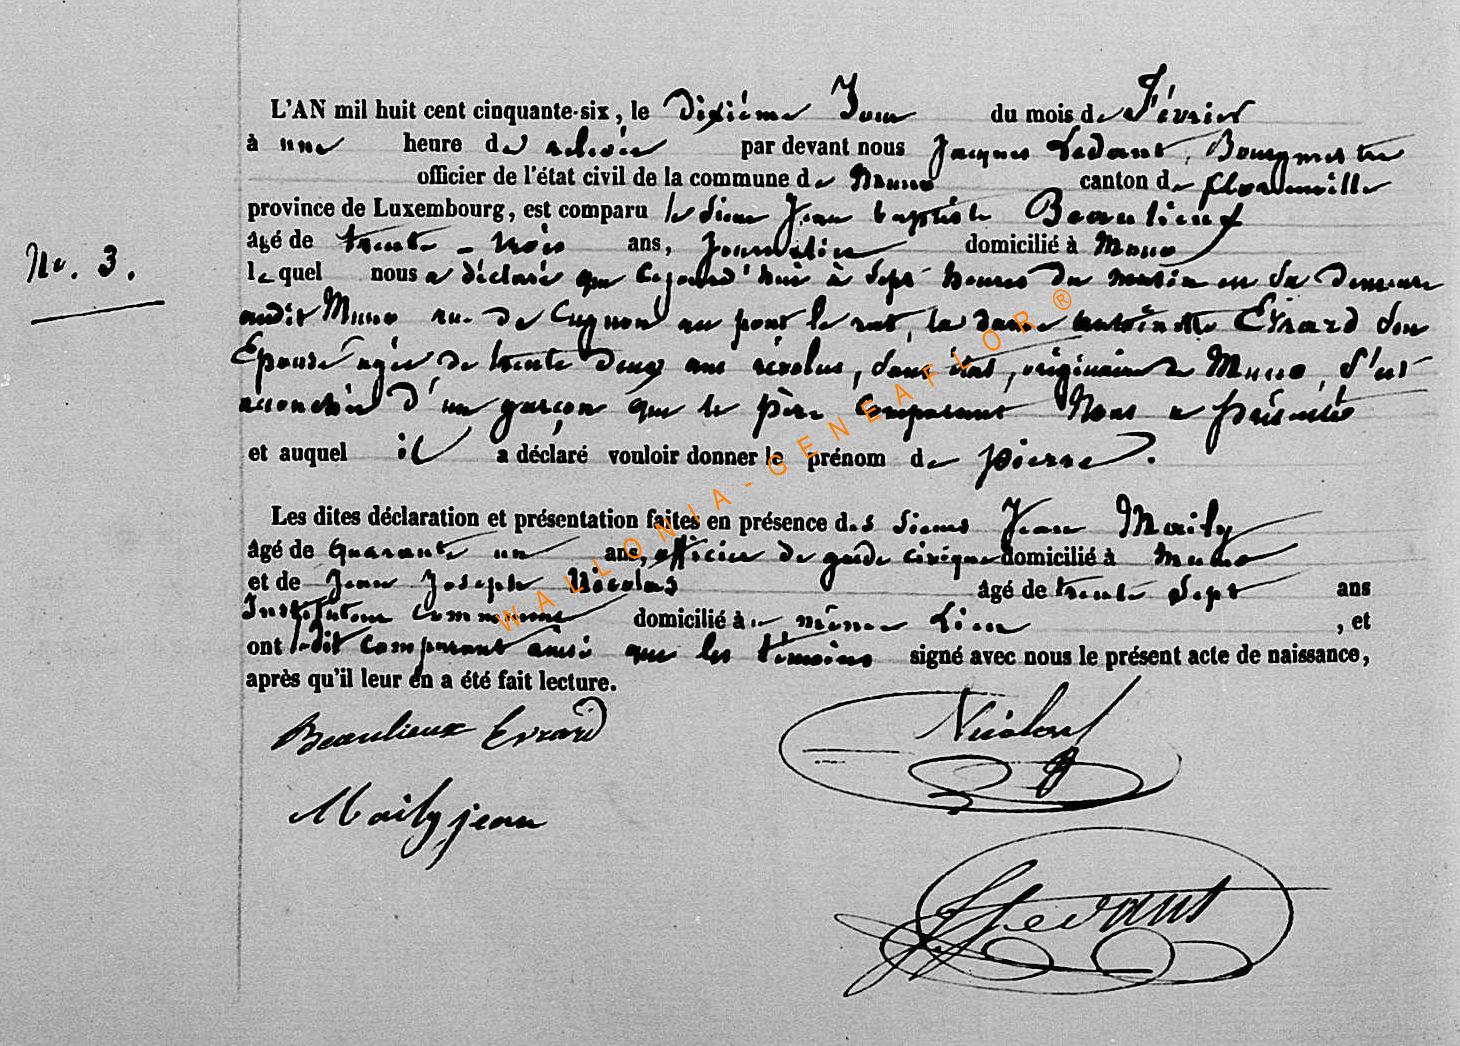 L'AN mil huit cent cinquante-six, le dixième Jour du mois de Février
à une heure de relevée par devant nous Jacques Ledant, Bourgmestre
officier de l'état civil de la commune de Muno canton de florenville
province de Luxembourg, est comparu le Sieur Jean baptiste Beaulieux
âgé de trente-trois ans, Journalier domicilié à Muno
No. 3.
lequel nous a déclaré que cejourd'hui à Sept heures du matin en Sa demeure
audit Muno rue de Cugnon au pont le rat, la dame antoinette Evrard Son
Epouse âgée de trente deux ans révolus, Sans état, originaire de Muno, S'est
accouchée d'un garçon que le père Comparant Nous a présenté
et auquel il a déclaré vouloir donner le prénom de pierre.
Les dites déclaration et présentation faites en présence des Sieurs Jean Maily
âgé de quarante un ans, officier de garde civique domicilié à Muno
et de Jean Joseph Nicolas âgé de trente Sept ans
Instituteur Communal domicilié à même Lieu, et
ont ledit Comparant ainsi que les témoins signé avec nous le présent acte de naissance,
après qu'il leur en a été fait lecture.
Beaulieux Evrard
Nicolas
Maily jean
J Ledant
WALLONIA-GENEAFLOR®